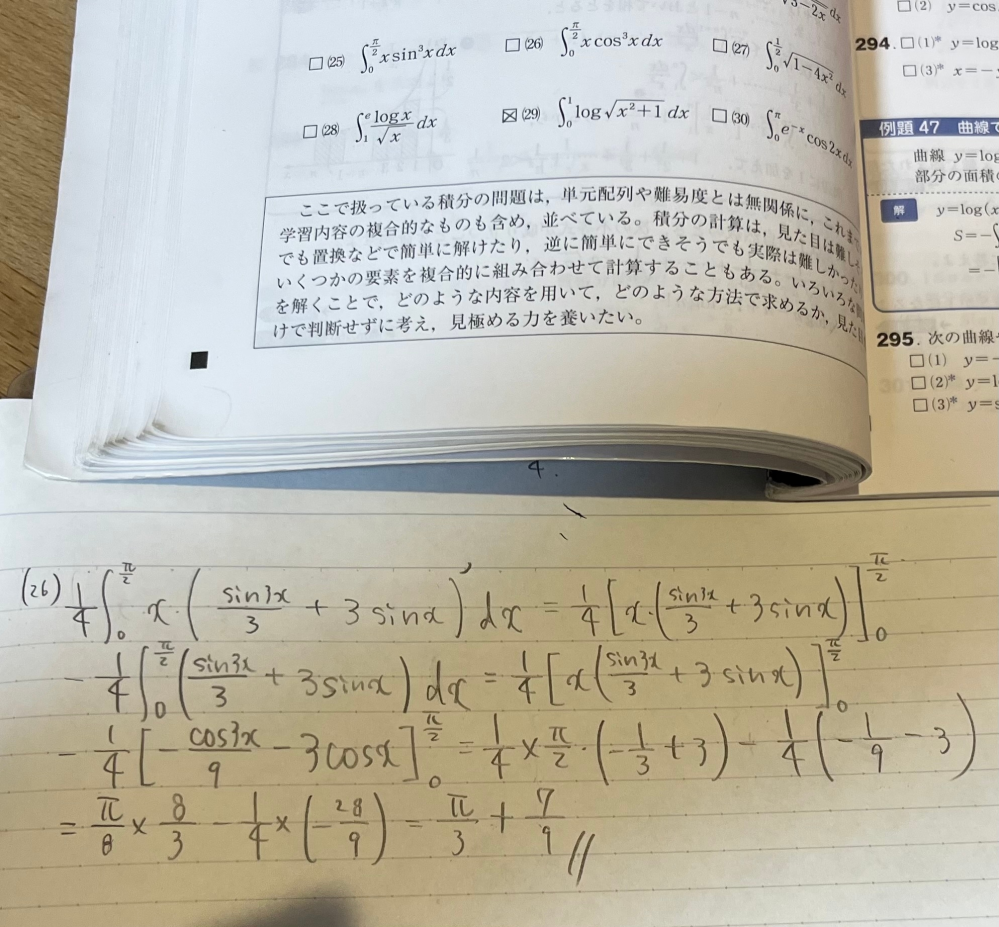 √3−2x dx
□(25) ∫₀^{π/2} x sin³x dx □(26) ∫₀^{π/2} x cos³x dx □(27) ∫₀^{1/2} √(1−4x²) dx
□(28) ∫₁^e log x/√x dx ☒(29) ∫₀^1 log√(x²+1) dx □(30) ∫₀^π e^{−x} cos2x dx
ここで扱っている積分の問題は,単元配列や難易度とは無関係に,これま
学習内容の複合的なものも含め,並べている。積分の計算は,見た目は難し
でも置換などで簡単に解けたり,逆に簡単にできそうでも実際は難しかった
いくつかの要素を複合的に組み合わせて計算することもある。いろいろな
を解くことで,どのような内容を用いて,どのような方法で求めるか,見た
けで判断せずに考え,見極める力を養いたい。
□(2) y=cos
294.□(1)* y=log
□(3)* x=−
例題 47 曲線で
曲線 y=log
部分の面積
解 y=log(x
S=−∫
=−
295.次の曲線
□(1) y=−
□(2)* y=l
□(3)* y=s
4.
(26) 1/4 ∫₀^{π/2} x·(sin3x/3 + 3sinx)' dx = 1/4 [x·(sin3x/3 + 3sinx)]₀^{π/2}
− 1/4 ∫₀^{π/2} (sin3x/3 + 3sinx) dx = 1/4 [x(sin3x/3 + 3sinx)]₀^{π/2}
− 1/4 [−cos3x/9 − 3cosx]₀^{π/2} = 1/4 × π/2 · (−1/3 + 3) − 1/4 (−1/9 − 3)
= π/8 × 8/3 − 1/4 × (−28/9) = π/3 + 7/9 //